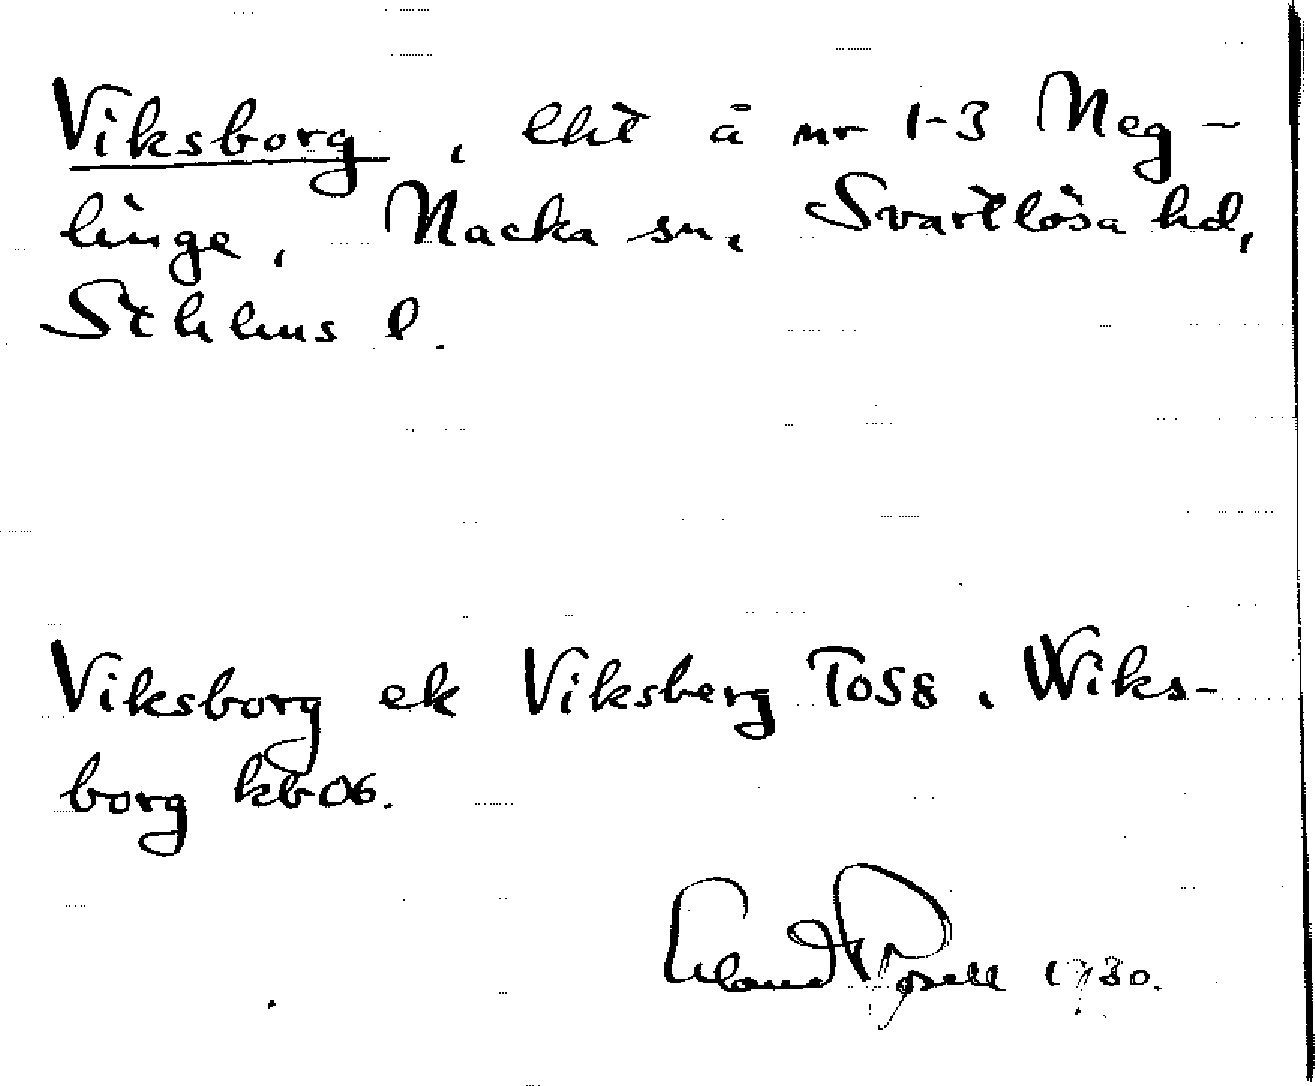 Viksborg, lht å nr 1-3 Neg-
linge, Nacka sn, Svartlösa hd,
Sthlms l.
Viksborg ek Viksberg TOS8. Wiks-
borg kb06.
Erland Rosell 1980.